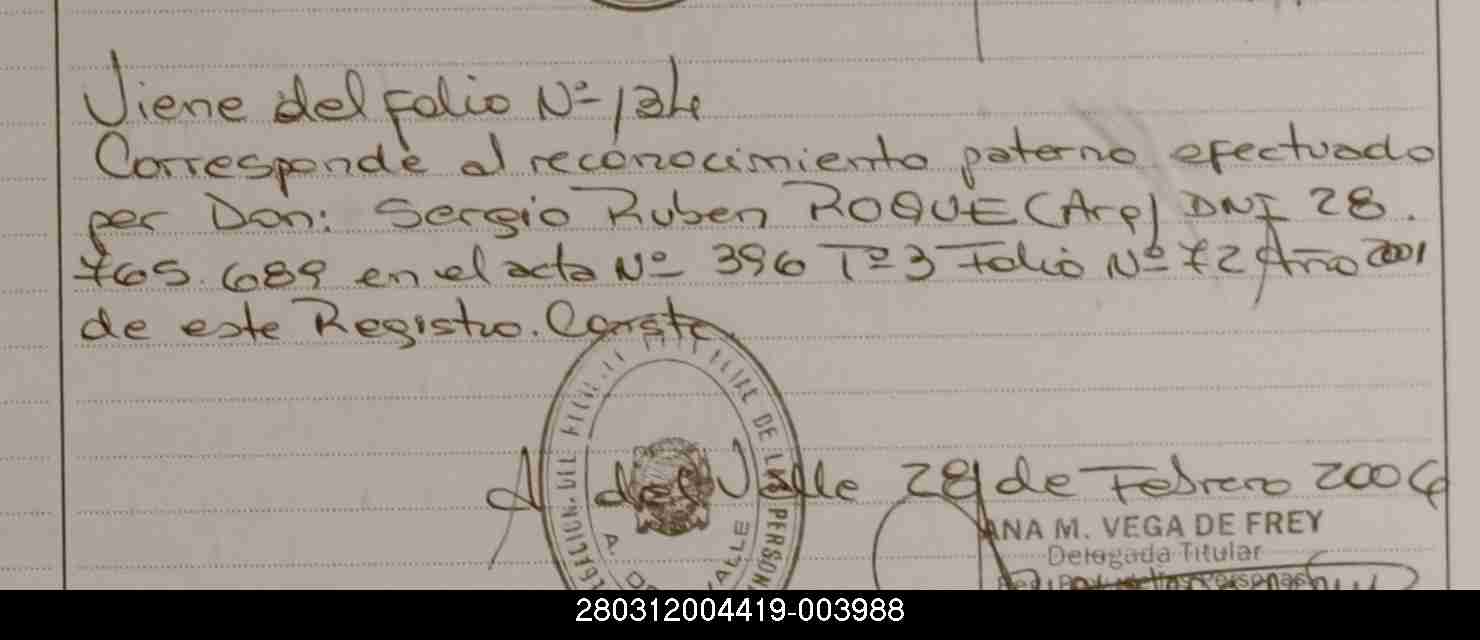 Viene del folio Nº 134
Corresponde al reconocimiento paterno efectuado
por Don: Sergio Ruben ROQUE (Arg) DNI 28.
765.689 en el acta Nº 396 Tº 3 Folio Nº 72 Año 2001
de este Registro. Conste
A del Valle 28 de Febrero 2006
DE LAS PERSON
A. DEL VALLE
ANA M. VEGA DE FREY
Delegada Titular
280312004419-003988